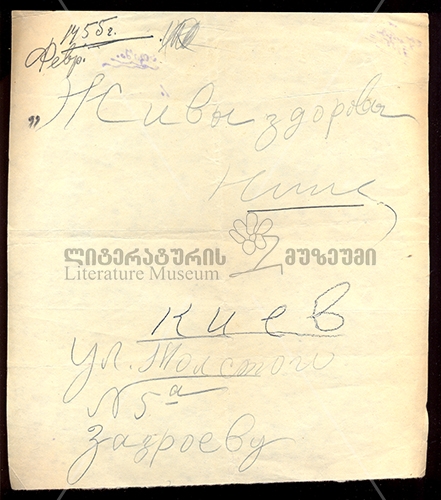 1955г.
Февр.
„Живы здоровы
Нина
ლიტერატურის მუზეუმი
Literature Museum
Киев
ул. Толстого
N 5а
Задроеву